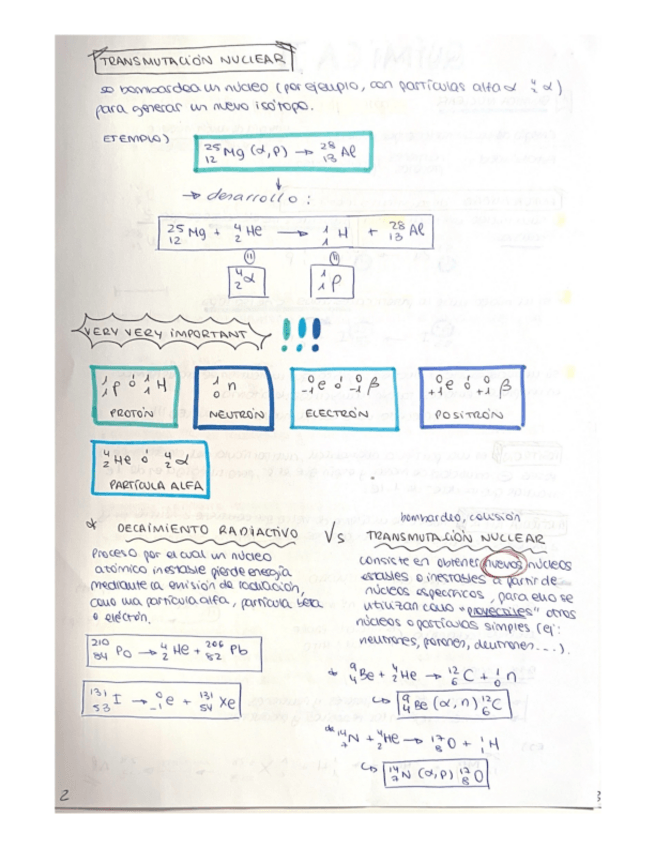 TRANSMUTACIÓN NUCLEAR
se bombardea un núcleo (por ejemplo, con partículas alfa α ⁴₂α)
para generar un nuevo isótopo.
EJEMPLO)
²⁵₁₂Mg (α,p) → ²⁸₁₃Al
→ desarrollo:
²⁵₁₂Mg + ⁴₂He → ¹₁H + ²⁸₁₃Al
⁴₂α ¹₁p
VERY VERY IMPORTANT !!!
¹₁p ó ¹₁H
PROTÓN
¹₀n
NEUTRÓN
⁰₋₁e ó ⁰₋₁β
ELECTRÓN
⁰₊₁e ó ⁰₊₁β
POSITRÓN
⁴₂He ó ⁴₂α
PARTÍCULA ALFA
* DECAIMIENTO RADIACTIVO
Proceso por el cual un núcleo
atómico inestable pierde energía
mediante la emisión de radiación,
como una partícula alfa, partícula beta
o electrón.
²¹⁰₈₄Po → ⁴₂He + ²⁰⁶₈₂Pb
¹³¹₅₃I → ⁰₋₁e + ¹³¹₅₄Xe
Vs
bombardeo, colisión
TRANSMUTACIÓN NUCLEAR
consiste en obtener nuevos núcleos
estables o inestables a partir de
núcleos específicos, para ello se
utilizan como "proyectiles" otros
núcleos o partículas simples (ej:
neutrones, protones, deutrones...).
* ⁹₄Be + ⁴₂He → ¹²₆C + ¹₀n
↳ ⁹₄Be (α,n) ¹²₆C
* ¹⁴₇N + ⁴₂He → ¹⁷₈O + ¹₁H
↳ ¹⁴₇N (α,p) ¹⁷₈O
2
3